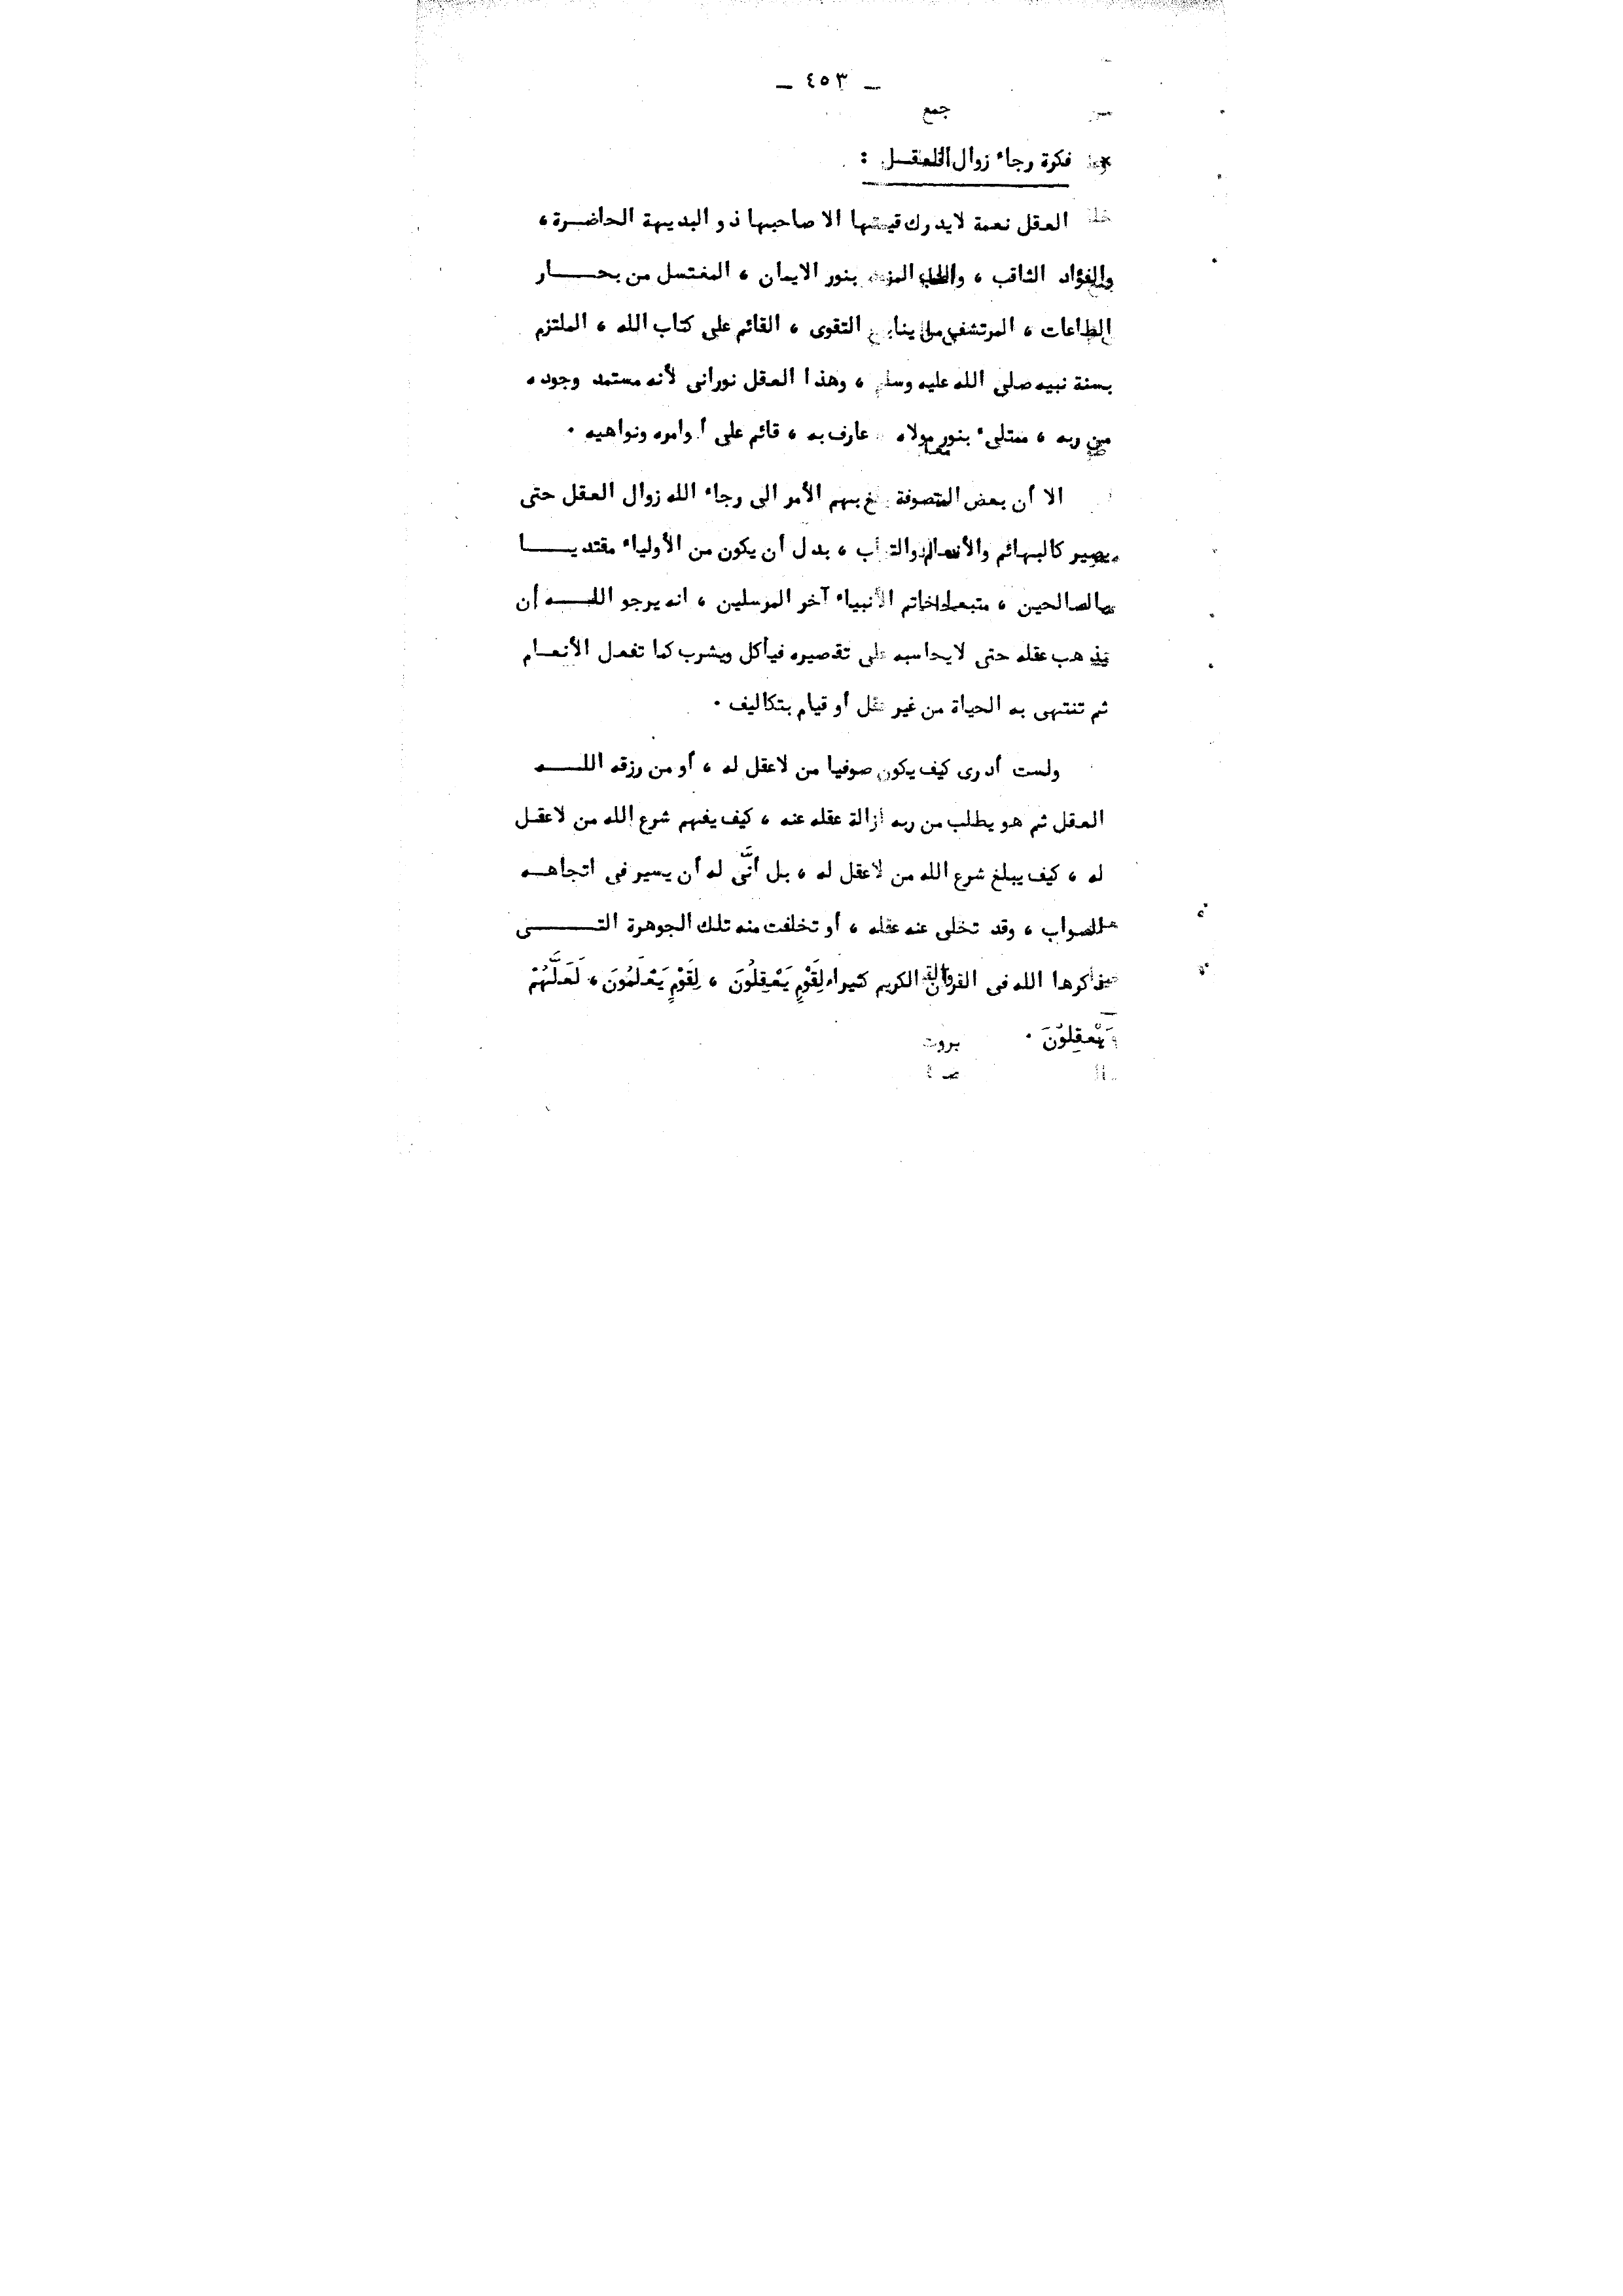 ـ ٤٥٣ ـ
جمع
* فكرة رجاء زوال العقـل :
العقل نعمة لايدرك قيمتها الا صاحبها ذو البديهة الحاضـرة ،
والفؤاد الثاقب ، والقلب بنور الايمان ، المغتسل من بحـــار
الطاعات ، المرتشف من ينابيع التقوى ، القائم على كتاب الله ، الملتزم
بسنة نبيه صلى الله عليه وسلم ، وهذا العقل نورانى لأنه مستمد وجوده
من ربه ، ممتلىء بنور مولاه عارف به ، قائم على أوامره ونواهيه .
الا أن بعض المتصوفة بلغ بهم الأمر الى رجاء الله زوال العقل حتى
يصير كالبهائم والأنعام والتراب ، بدل أن يكون من الأولياء مقتديـــا
بالصالحين ، متبعا خاتم الأنبياء آخر المرسلين ، انه يرجو اللــه أن
يذهب عقله حتى لايحاسبه على تقصيره فيأكل ويشرب كما تفعل الأنعـام
ثم تنتهى به الحياة من غير عقل أو قيام بتكاليف .
ولست أدرى كيف يكون صوفيا من لاعقل له ، أو من رزقه اللـــه
العقل ثم هو يطلب من ربه ازالة عقله عنه ، كيف يفهم شرع الله من لاعقـل
له ، كيف يبلغ شرع الله من لاعقل له ، بل أنَّى له أن يسير فى اتجاهـه
للصواب ، وقد تخلى عنه عقله ، أو تخلفت منه تلك الجوهرة التـــى
ذكرها الله فى القرآن الكريم كثيرا، لِقَوْمٍ يَعْقِلُونَ ، لِقَوْمٍ يَعْلَمُونَ ، لَعَلَّهُمْ
يَعْقِلُوْنَ .
بروت